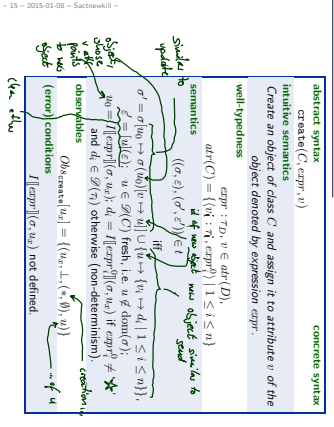 – 15 – 2015-01-08 – Sactnewkill –
abstract syntax concrete syntax
create(C, expr, v)
intuitive semantics
Create an object of class C and assign it to attribute v of the
object denoted by expression expr.
well-typedness
expr : τ_D, v ∈ atr(D),
atr(C) = {⟨v_i : τ_i, expr_i^0⟩ | 1 ≤ i ≤ n}
semantics
((σ, ε), (σ′, ε′)) ∈ t
iff
σ′ = σ[u_0 ↦ σ(u_0)[v ↦ u]] ∪ {u ↦ {v_i ↦ d_i | 1 ≤ i ≤ n}},
ε′ = [u](ε); u ∈ 𝒟(C) fresh, i.e. u ∉ dom(σ);
u_0 = I⟦expr⟧(σ, u_x); d_i = I⟦expr_i^0⟧(σ, u_x) if expr_i^0 ≠
and d_i ∈ 𝒟(τ_i) otherwise (non-determinism).
observables
Obs_create[u_x] = {(u_x, ⊥, (∗, ∅), u)}
(error) conditions
I⟦expr⟧(σ, u_x) not defined.
similar to
update
id of new object
new object similar to
send
object
choose
points
to new
object
creation
of u